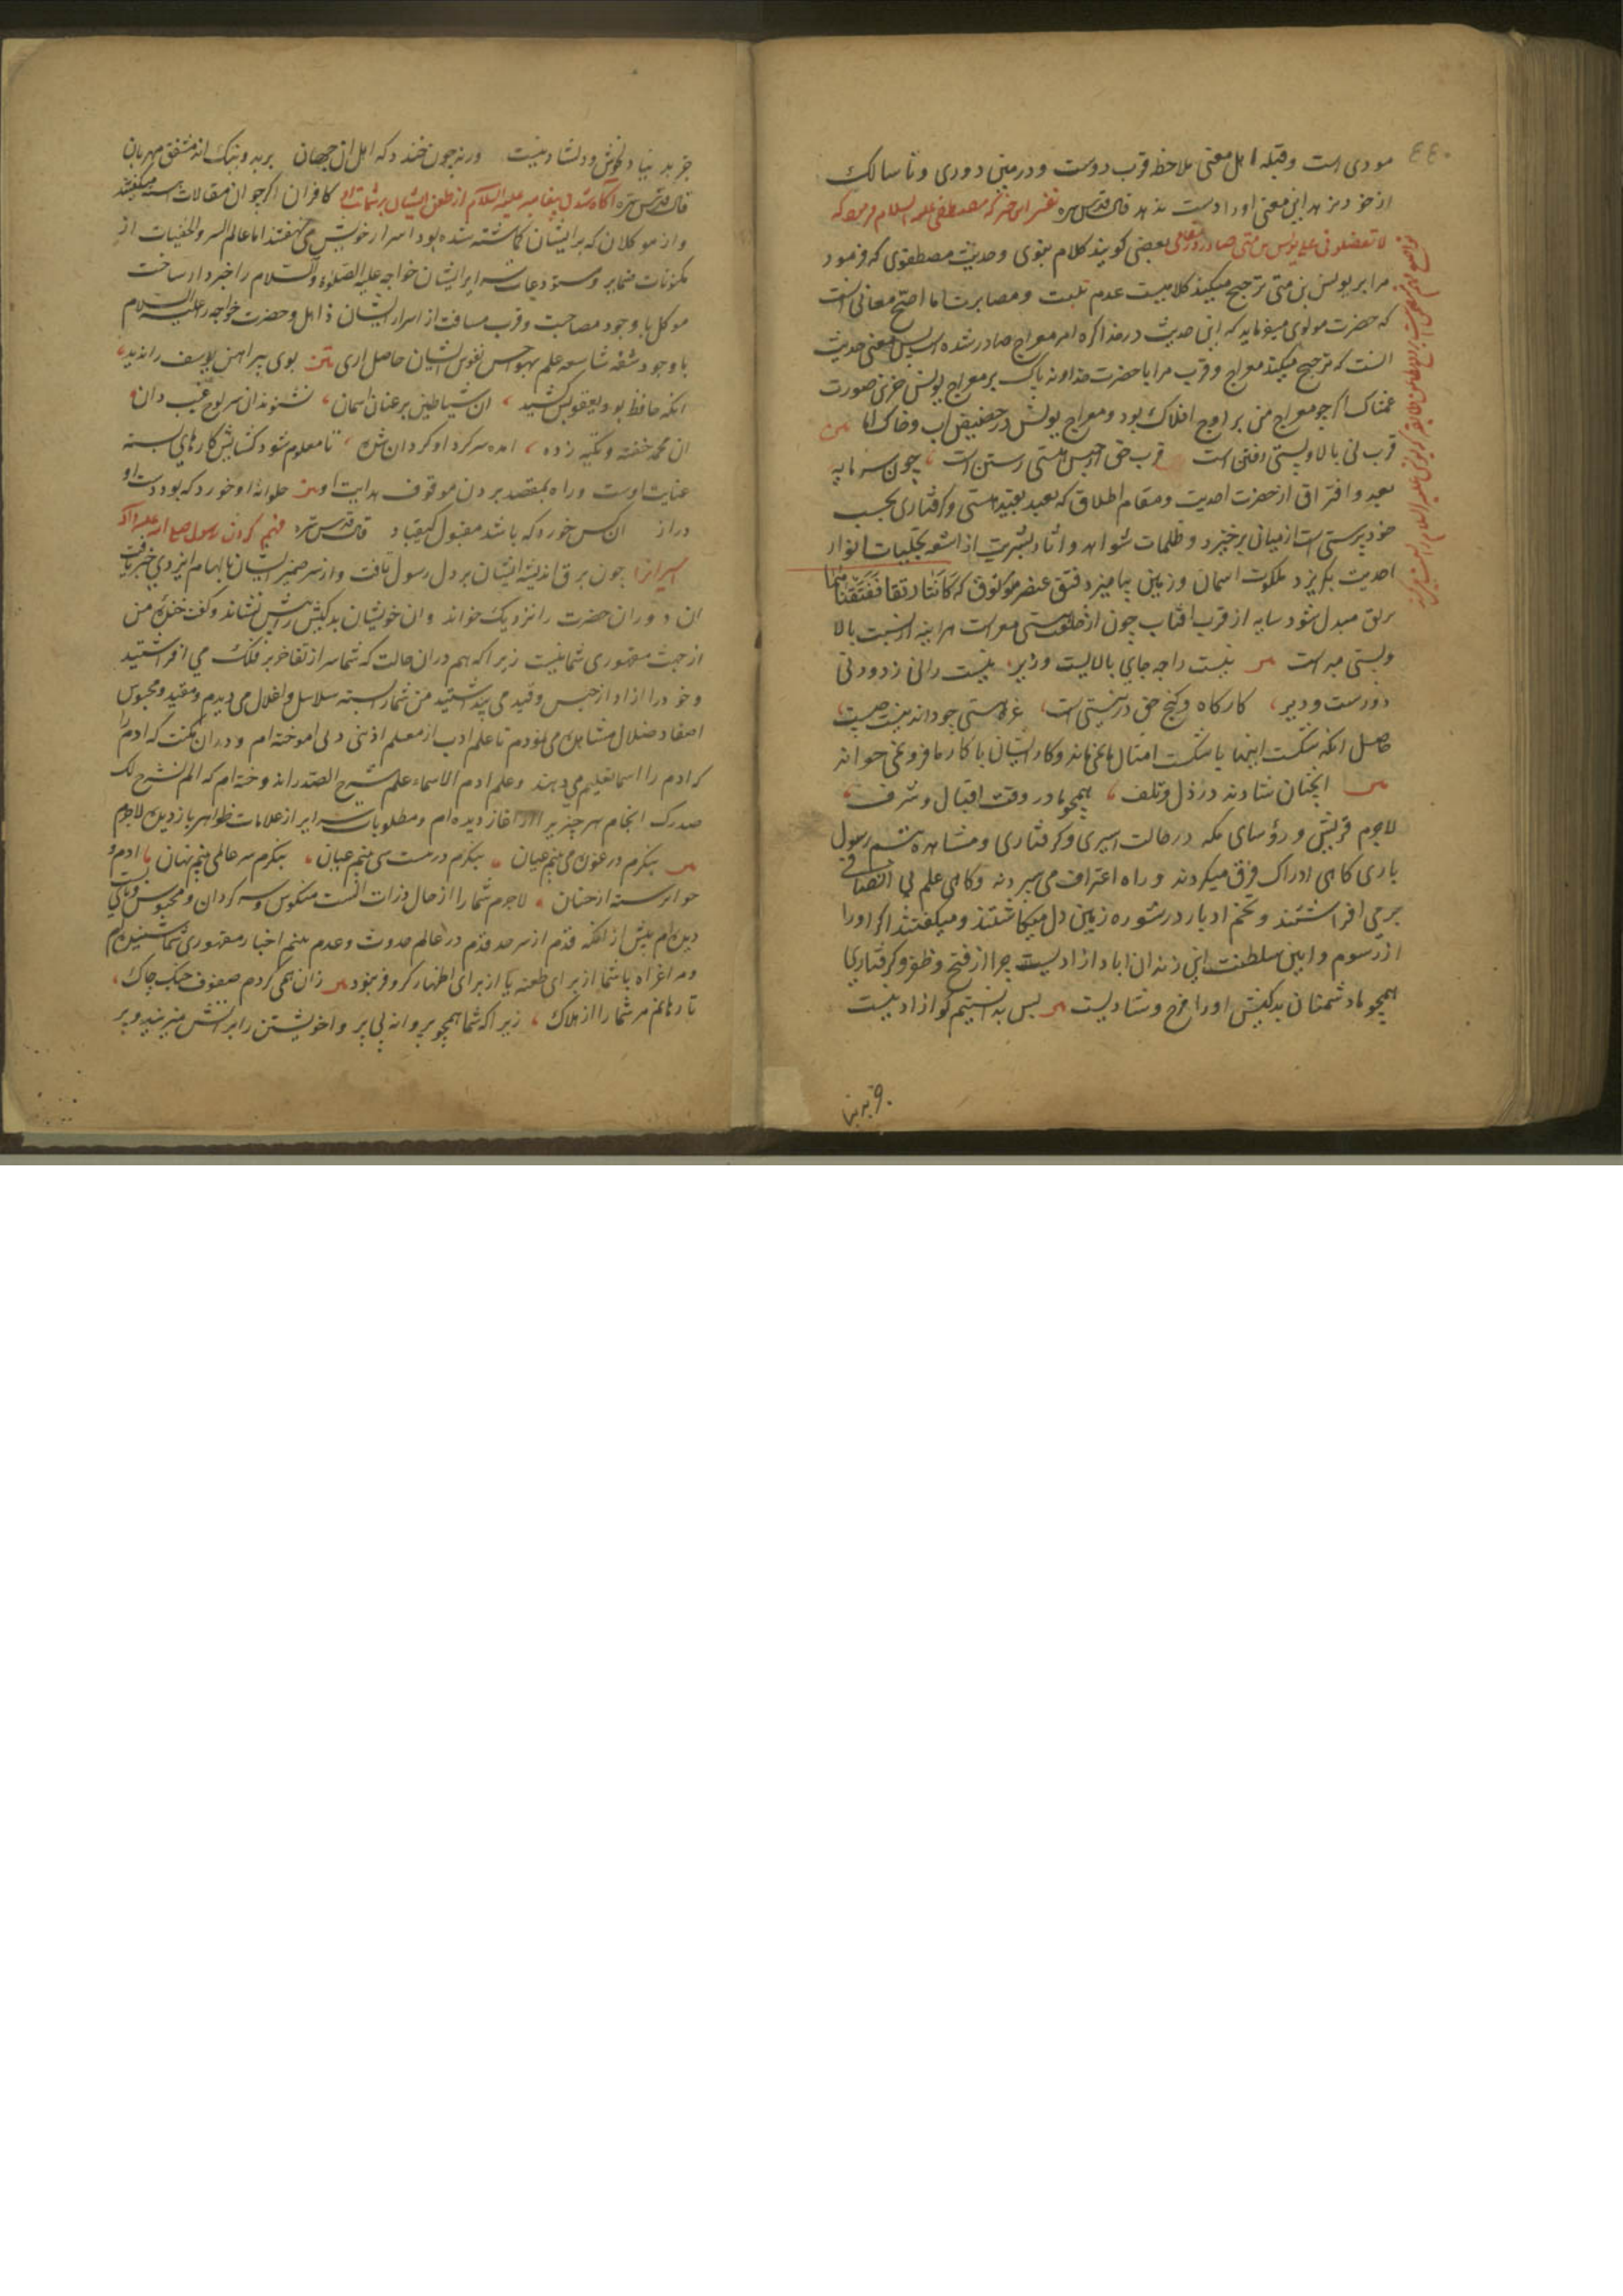 ٤٤٠
مودی است و قبله اهل معنی ملاحظه قرب دوست و در مبنی دوری و تا سالک
از خود نرهد این معنی او را دست ندهد قال قدس سره تفسیر این خبر که مصطفی علیه السلام فرمود که
لا تفضلونی علی یونس بن متی بعضی کویند کلام نبوی و حدیث مصطفوی که فرمود
مرا بر یونس بن متی ترجیح میکنید کلامیست عدم و مصابرت اما اصح معانی آنست
که حضرت مولوی میفرماید که این حدیث در مذاکره امر معراج صادر شده است پس معنی حدیث
انست که ترجیح میکنید معراج و قرب مرا با حضرت خداوند پاک بر معراج یونس حزین صورت
غمناک اگرچه معراج من بر اوج افلاک بود و معراج یونس در حضیض آب و خاک اما
قرب نی بالا و پستی رفتن است قرب حق از حبس هستی رستن است چون سرمایه
بعد و افتراق از حضرت احدیت و مقام اطلاق که بعید بقید هستی و کرفتاری بحسب
خود پرستی است از میانی برخیزد و ظلمات شواهد و آثار بشریت از اشعه تجلیات انوار
احدیت بگریزد ملکوت اسمان و زمین بیامیزد فتق عنصر که کانتا رتقا ففتقناهما
برتق مبدل شود سایه از قرب آفتاب چون از خلعت هستی معراست هرآینه از نسبت بالا
و پستی مبراست نیست را چه جای بالایست و زیر نیست را نی زود و نی
دورست و دیر کارکاه و کنج حق در نیستی است غره هستی چه داند نیست چیست
حاصل انکه شکست اینها با شکست امثال ما نمی‌ماند و کار ایشان با کار ما فرو نمی‌خواند
انچنان شادند در ذل و تلف همچو ما در وقت اقبال و شرف
لاجرم قریش و رؤسای مکه در حالت اسیری و کرفتاری و مشاهده تبسم رسول
باری کاهی ادراک فرق میکردند و راه اعتراف می سپردند و کاهی علم بی انصافی
بر می افراشتند و تخم ادبار در شوره زمین دل میکاشتند و میکفتند اکر او را
از رسوم و آیین سلطنت این زندان اباد ازادیست چرا از فتح و ظفر و کرفتاری
همچو ما دشمنان بدکیش او را فرح و شادیست پس بدانستیم کو ازاد نیست
جز بدنیا دلخوش و دلشاد نیست ورنه چون خندد که اهل ان جهان بر بد و نیک اند مشفق مهربان
قال قدس سره آگاه شدن پیغامبر علیه السلام از طعن ایشان بر شماتت او کافران اکرچه ان مقالات اهسته میکفتند
و از موکلان که بر ایشان کماشته شده بود اسرار خویش می نهفتند اما عالم السر و الخفیات از
مکنونات ضمایر و مستودعات سرایر ایشان خواجه علیه الصلوة والسلام را خبردار ساخت
موکل با وجود مصاحبت و قرب مسافت از اسرار ایشان ذاهل و حضرت خواجه را علیه السلام
با وجود شقه شاسعه علم بهواجس نفوس ایشان حاصل اری بوی پیراهن یوسف را ندید
انکه حافظ بود و یعقوبش کشید ان شیاطین بر عنان اسمان نشنوند ان سر لوح غیب دان
ان محمد خفته و تکیه زده امده سر کرد او کردان شده تا معلوم شود کشایش کارهای بسته
عنایت اوست و راه بمقصد بردن موقوف هدایت او حلوا ان او خورد که بود دست او
دراز ان کس خورد که باشد مقبول کیقباد قال قدس سره فهم کردن رسول
اسیرانرا چون برق اندیشه ایشان بر دل رسول تافت و از سر ضمیر ایشان با الهام ایزدی خبر یافت
ان دوران حضرت را نزدیک خواند و ان خویشان بدکیش را پیش نشاند و کفت خنده من
از جهت مقهوری شما نیست زیرا که هم دران حالت که شما سر از تفاخر بر فلک می افراشتید
و خود را ازاد از حبس و قید می پنداشتید من شما را بسته سلاسل و اغلال می دیدم و مقید و محبوس
اصفاد ضلال مشاهده می نمودم تا علم ادب از معلم ادبنی ربی اموخته ام و دران مکتب که ادم را
کر ادم را اسما تعلیم می دهند و علم ادم الاسماء علم شرح الصدر اندوخته ام که الم نشرح لک
صدرک انجام هر چیز بر اغاز دیده ام و مطلوبات سرایر از علامات ظواهر باز دیده لاجرم
بنکرم در غوره می بینم عیان بنکرم در نیست شی بینم عیان بنکرم سر عالمی بینم نهان ادم و
حوا نرسته از جهان لاجرم شما را از حال ذرات الست منکوس و سرکردان و محبوس و پای بست
دیده ام پیش از انکه قدم از سر حد قدم در عالم حدوث و عدم بنهم اخبار مقهوری شما شنیده ام
ومرا غزاه با شما از برای طعنه یا از برای اظهار کر و فر نبود زان همی کردم صفوف جنک چاک
تا رهانم مر شما را از هلاک زیرا که شما همچو پروانه بی پروا خویشتن را بر اتش میزنید و بر